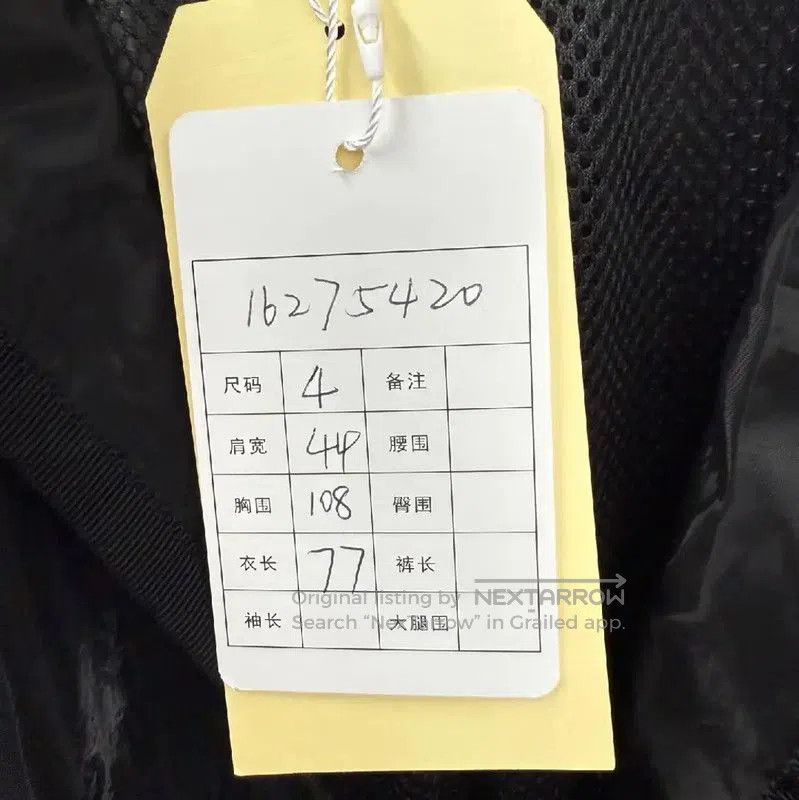 16275420
尺码 4 备注
肩宽 44 腰围
胸围 108 臀围
衣长 77 裤长
Original listing by NEXTARROW
袖长 大腿围
Search “NextArrow” in Grailed app.